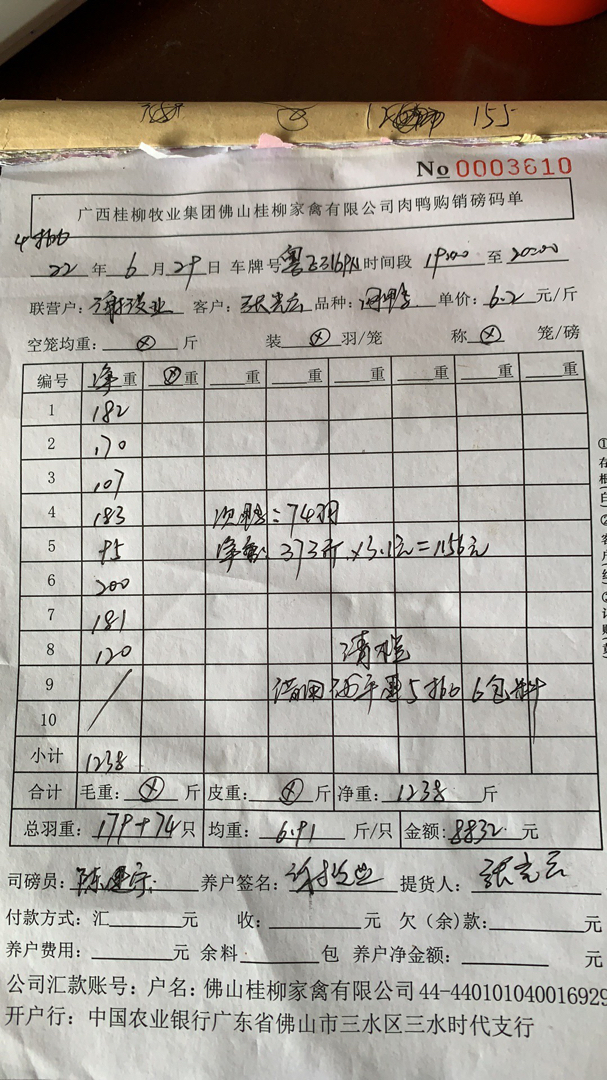 155
No 0003610
广西桂柳牧业集团佛山桂柳家禽有限公司肉鸭购销磅码单
22 年 6 月 29 日 车牌号 时间段 19:00 至 20:00
联营户: 客户: 张光云 品种: 单价: 6.2 元/斤
空笼均重: ⊗ 斤 装 ⊗ 羽/笼 称 ⊗ 笼/磅
编号 净重 ⊗重 重 重 重 重 重 重
1 182
2 170
3 107
4 183 次鸭: 74羽
5 95 净重: 373斤×3.1元=1156元
6 200
7 181
8 120 清栏
9 6包料
10
小计 1238
合计 毛重: ⊗ 斤 皮重: ⊗ 斤 净重: 1238 斤
总羽重: 179+74 只 均重: 6.91 斤/只 金额: 8832 元
司磅员: 陈建宗 养户签名: 提货人: 张光云
付款方式: 汇 元 收: 元 欠(余)款: 元
养户费用: 元 余料 包 养户净金额: 元
公司汇款账号: 户名: 佛山桂柳家禽有限公司 44-440101040016929
开户行: 中国农业银行广东省佛山市三水区三水时代支行